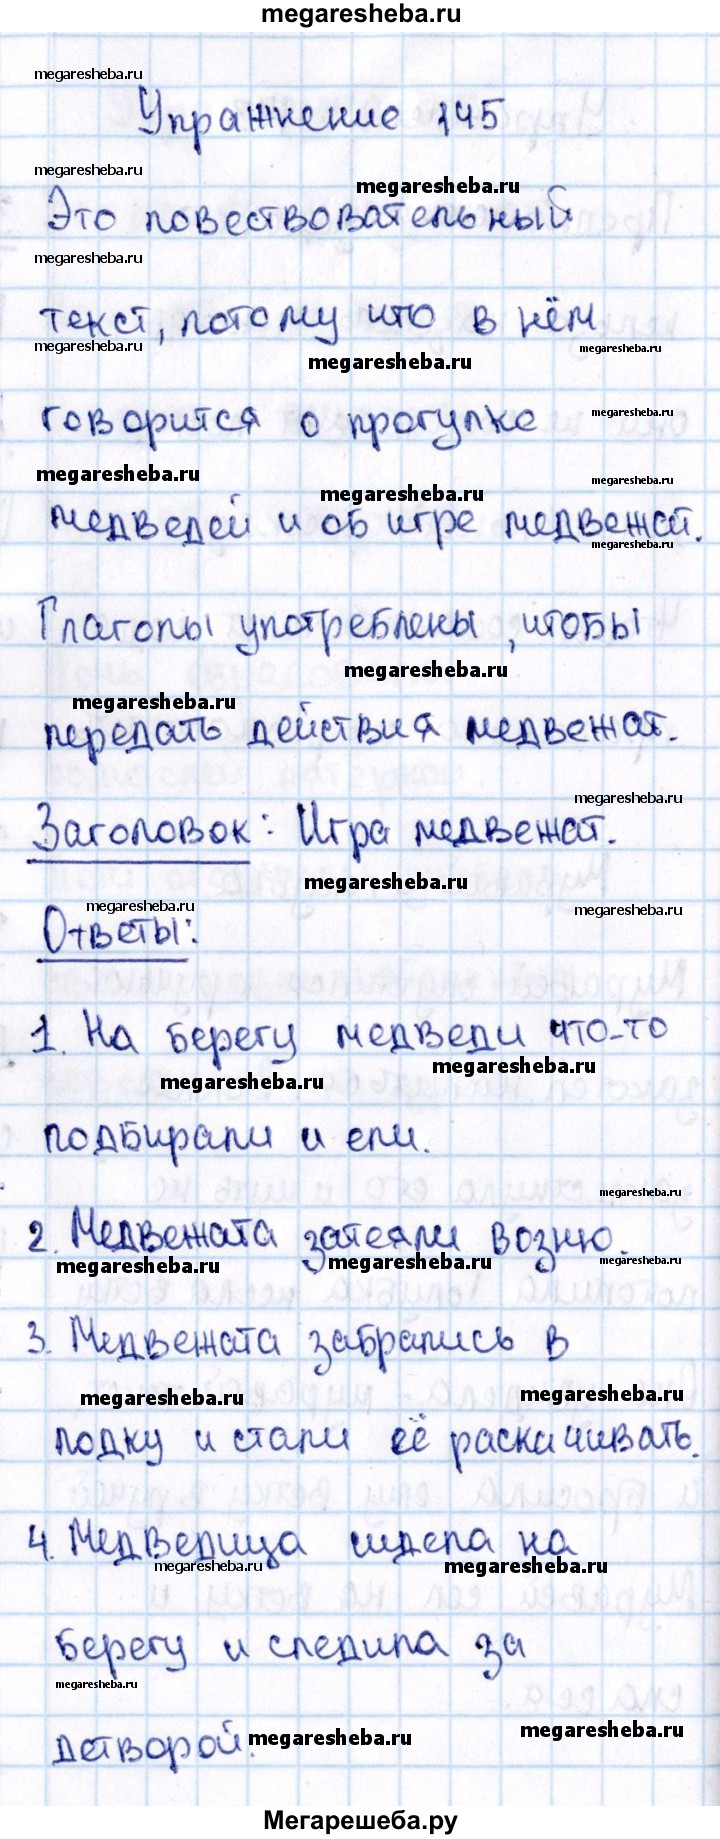 megaresheba.ru
megaresheba.ru
Упражнение 145
megaresheba.ru
megaresheba.ru
Это повествовательный
megaresheba.ru
текст, потому что в нём
megaresheba.ru
megaresheba.ru
megaresheba.ru
говорится о прогулке
megaresheba.ru
megaresheba.ru
megaresheba.ru
megaresheba.ru
медведей и об игре медвежат.
megaresheba.ru
Глаголы употреблены, чтобы
megaresheba.ru
megaresheba.ru
передать действия медвежат.
megaresheba.ru
Заголовок: Игра медвежат.
megaresheba.ru
megaresheba.ru
megaresheba.ru
Ответы:
1. На берегу медведи что-то
megaresheba.ru
megaresheba.ru
подбирали и ели.
megaresheba.ru
2. Медвежата затеяли возню.
megaresheba.ru
megaresheba.ru
megaresheba.ru
3. Медвежата забрались в
megaresheba.ru
megaresheba.ru
лодку и стали её раскачивать.
4. Медведица сидела на
megaresheba.ru
megaresheba.ru
берегу и следила за
megaresheba.ru
детворой.
megaresheba.ru
megaresheba.ru
Мегарешеба.ру